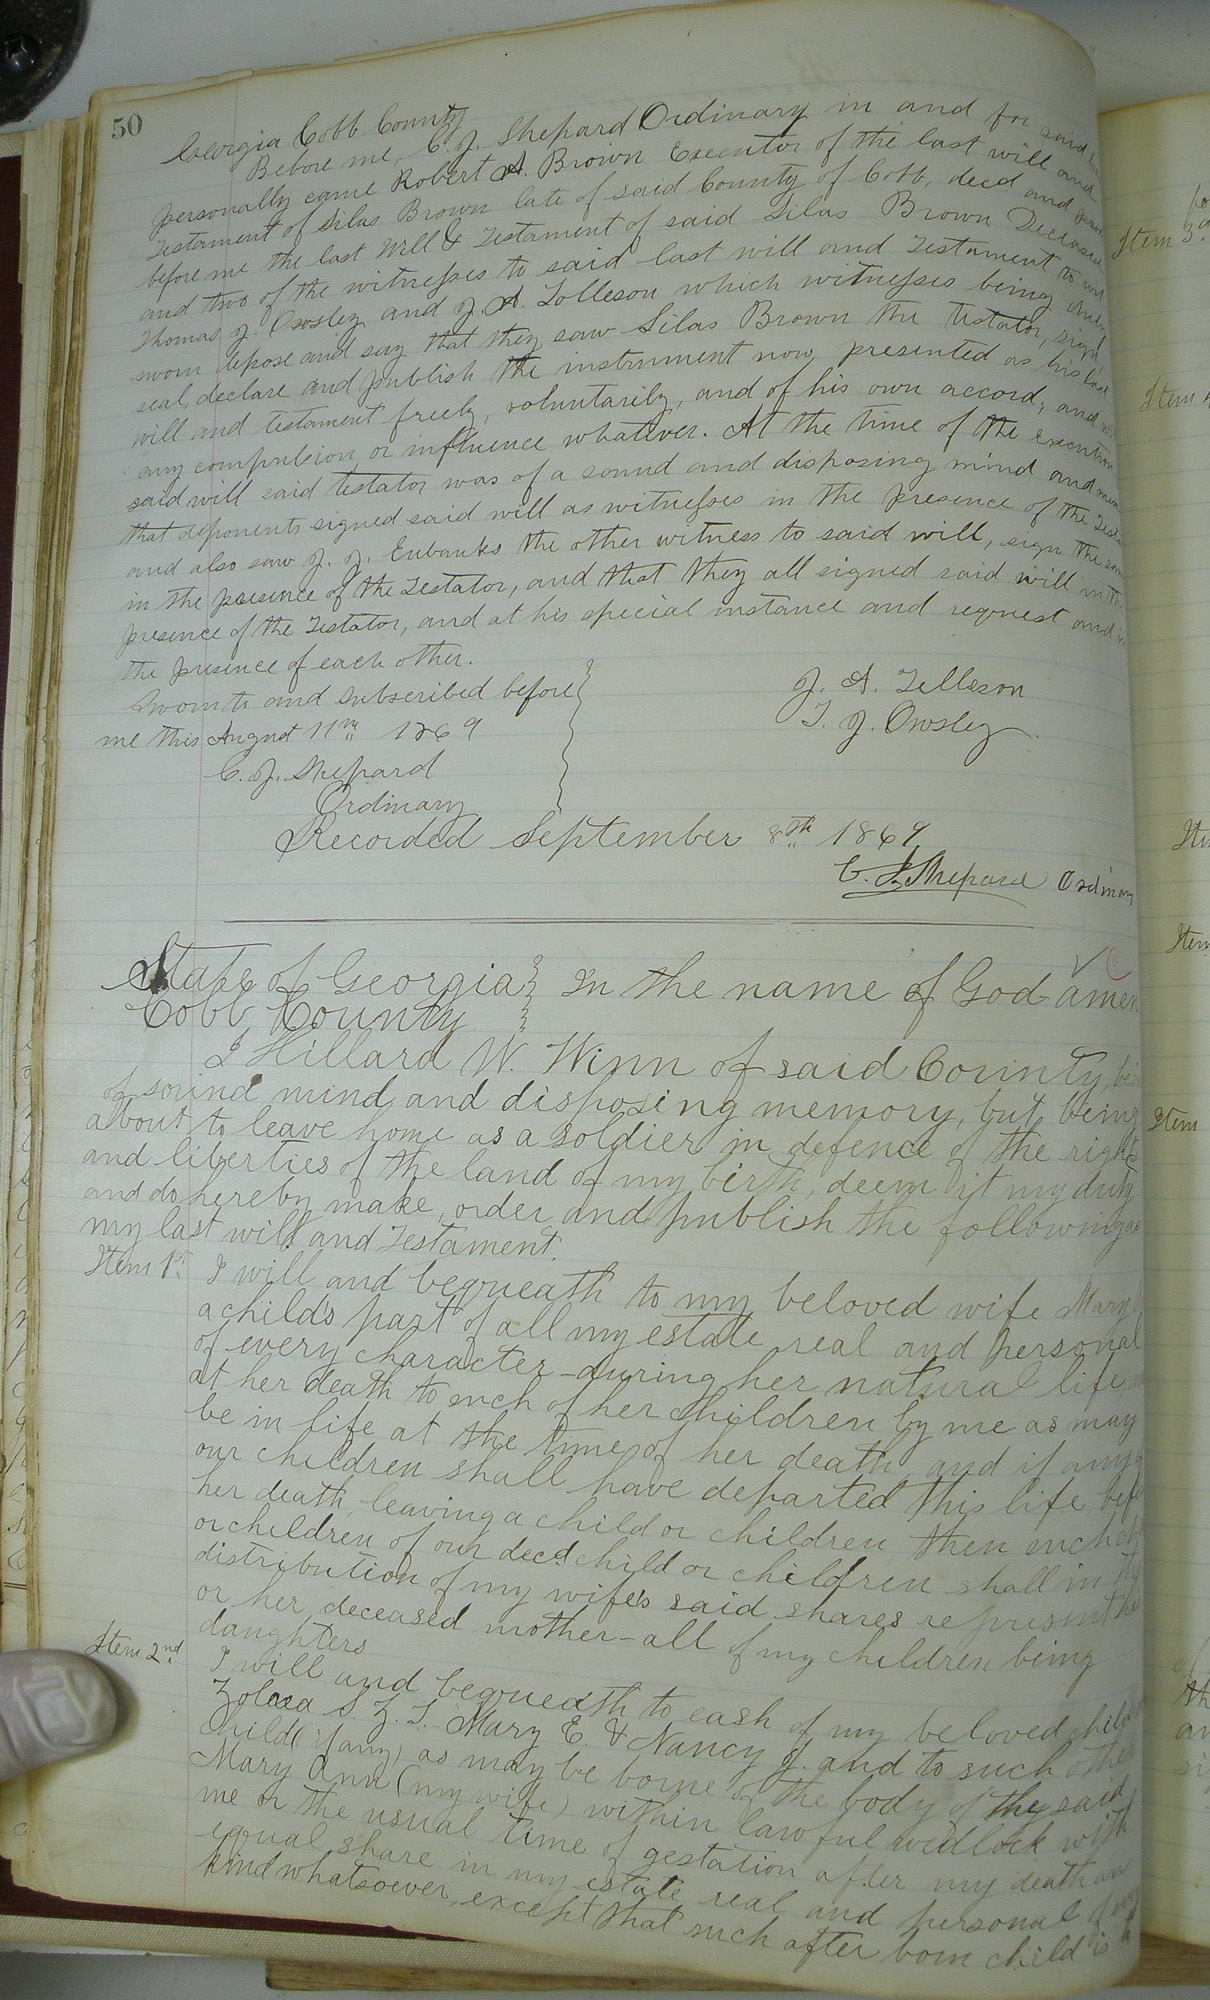 50
Georgia Cobb County
Before me, C. J. Shepard Ordinary in and for said
personally came Robert A. Brown Executor of the last will and
Testament of Silas Brown late of said County of Cobb, decd and
before me the last Will & Testament of said Silas Brown Deceased
and two of the witnesses to said last will and Testament to wit
Thomas J. Owsley and J. A. Tolleson which witnesses being duly
sworn depose and say that they saw Silas Brown the Testator, sign
seal, declare and publish the instrument now presented as his last
will and testament freely, voluntarily, and of his own accord, and
any compulsion or influence whatever. At the time of the execution
said will said testator was of a sound and disposing mind and
that deponents signed said will as witnesses in the presence of the
and also saw J. J. Eubanks the other witness to said will, sign the
in the presence of the Testator, and that they all signed said will in the
presence of the Testator, and at his special instance and request and in
the presence of each other.
Sworn to and subscribed before
me this August 11th 1869
C. J. Shepard
Ordinary
J. A. Tolleson
T. J. Owsley
Recorded September 8th 1869
C. J. Shepard Ordinary
State of Georgia
Cobb County
In the name of God amen
I Hillard W. Winn of said County,
of sound mind and disposing memory, but being
about to leave home as a soldier in defence of the rights
and liberties of the land of my birth, deem it my duty
and do hereby make, order and publish the following as
my last will and Testament.
Item 1st I will and bequeath to my beloved wife Mary
a child's part of all my estate real and personal
of every character during her natural life
at her death to such of her children by me as may
be in life at the time of her death, and if any
our children shall have departed this life
her death, leaving a child or children, then such
or children of our decd child or children shall in
distribution of my wife's said shares represent
or her deceased mother - all of my children being
daughters
Item 2nd I will and bequeath to each of my beloved
S. Z. T. Mary E. & Nancy J. and to such other
child (if any) as may be borne of the body of the said
Mary Ann (my wife) within lawful wedlock with
me or the usual time of gestation after my death an
equal share in my estate real and personal of
kind whatsoever, except that such after born child is
Item 3d
Item
Item